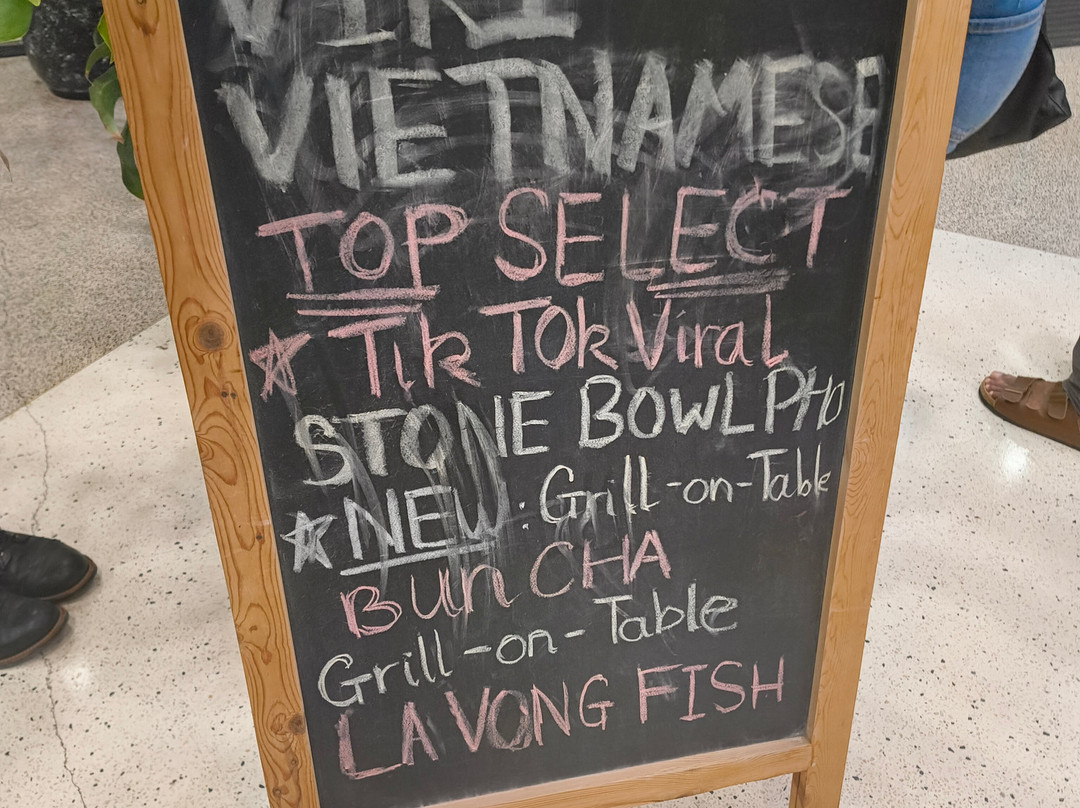 VIETNAMESE
TOP SELECT
Tik Tok Viral
STONE BOWL PHO
NEW: Grill-on-Table
BUn CHA
Grill-on-Table
LA VONG FISH